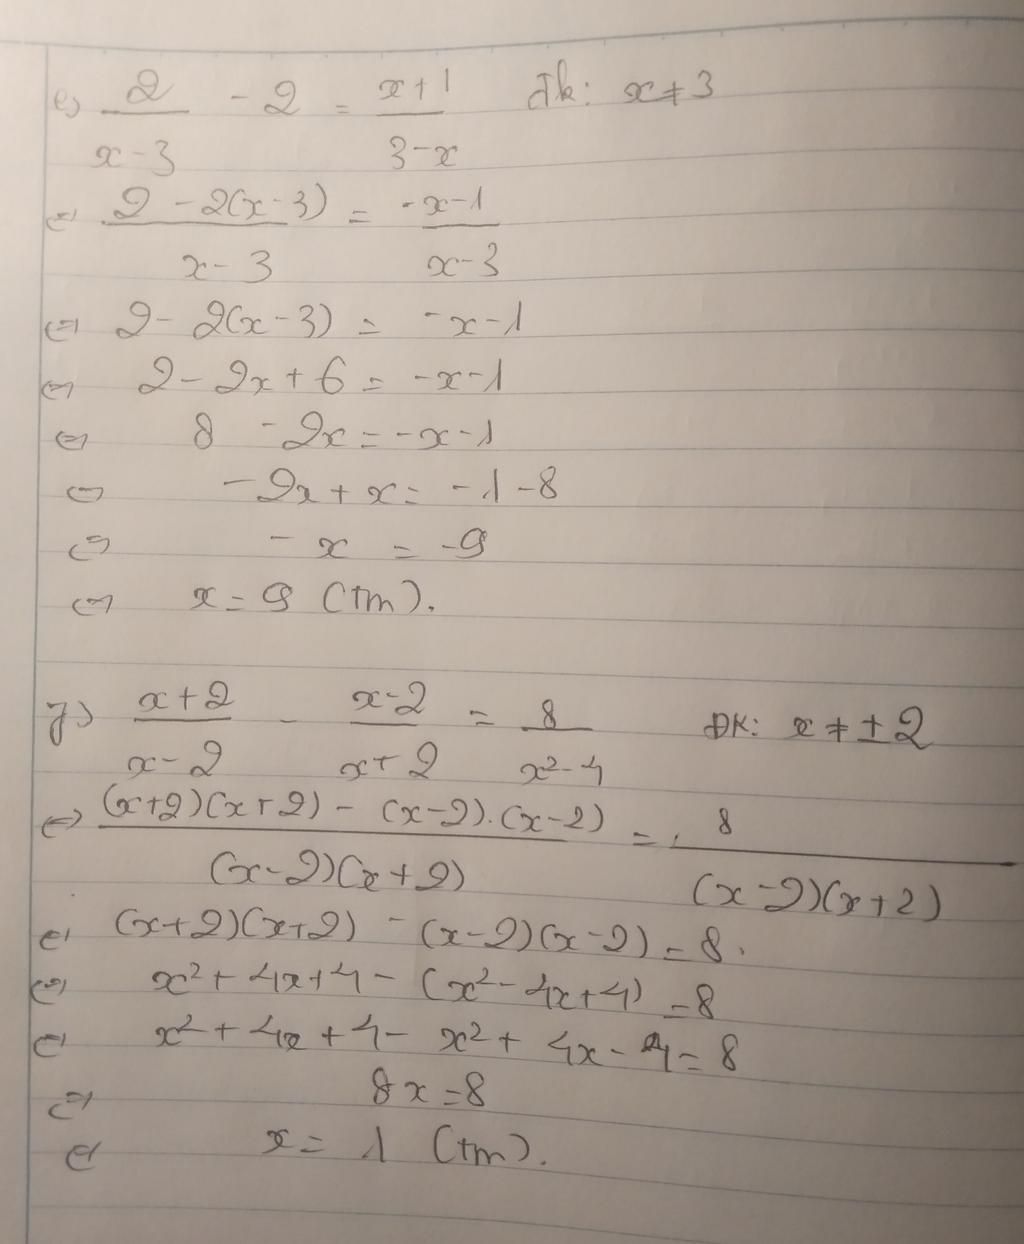 e) 2/(x-3) - 2 = (x+1)/(3-x) đk: x ≠ 3
⇔ (2 - 2(x-3))/(x-3) = (-x-1)/(x-3)
⇔ 2 - 2(x-3) = -x-1
⇔ 2 - 2x + 6 = -x-1
⇔ 8 - 2x = -x-1
⇔ -2x + x = -1-8
⇔ -x = -9
⇔ x = 9 (tm).
(x+2)/(x-2) - (x-2)/(x+2) = 8/(x²-4) ĐK: x ≠ ±2
⇔ ((x+2)(x+2) - (x-2).(x-2))/((x-2)(x+2)) = 8/((x-2)(x+2))
⇔ (x+2)(x+2) - (x-2)(x-2) = 8.
⇔ x² + 4x + 4 - (x² - 4x + 4) = 8
⇔ x² + 4x + 4 - x² + 4x - 4 = 8
⇔ 8x = 8
⇔ x = 1 (tm).